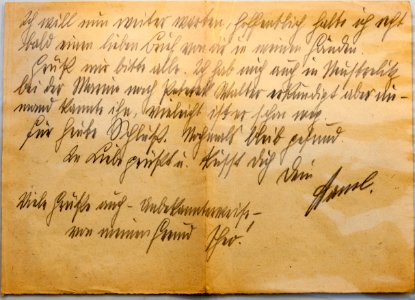 Ich will nun weiter warten, hoffentlich halte ich recht
bald einen lieben Brief von dir in meinen Händen.
Grüß mir bitte alle. Ich hab mich auch in Neustrelitz
bei der Marine nach Walter erkundigt aber nie-
mand kannte ihn, vielleicht ist er schon weg.
Für heute Schluß. Nochmals bleib gesund
In Liebe grüßt u. küsst Dich Dein
Viele Grüße auch - Unbekannterweise -
von meinem Freund